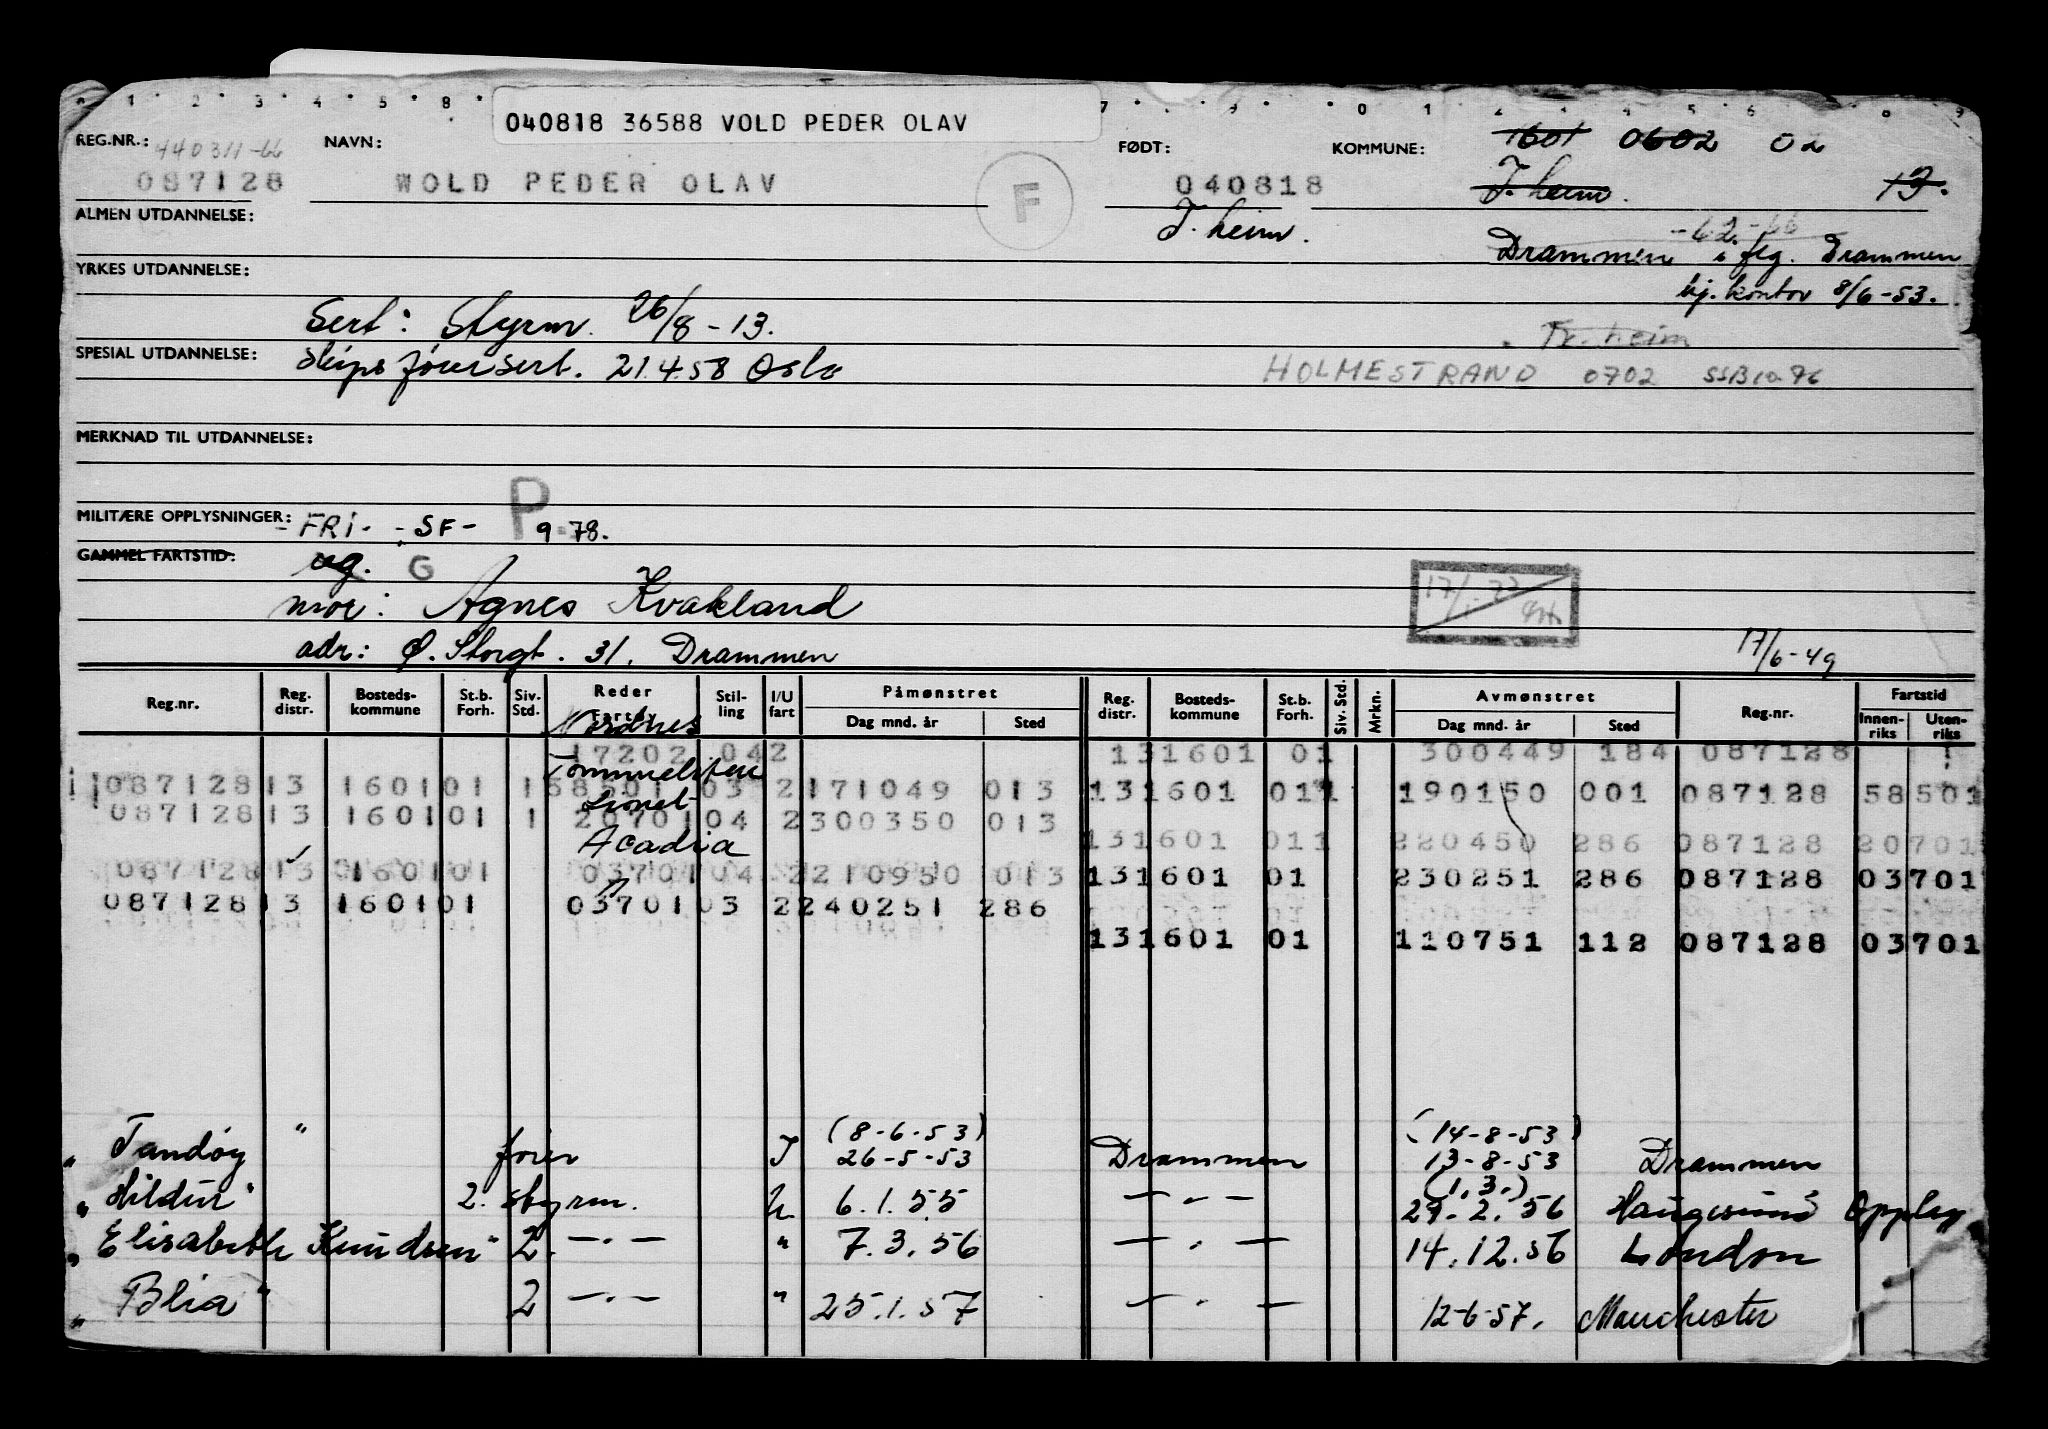 040818 36588 VOLD PEDER OLAV
REG.NR.: 440311-66 NAVN: FØDT: KOMMUNE: 1601 0602 02
087128 WOLD PEDER OLAV F 040818 T.heim. 13.
ALMEN UTDANNELSE: T.heim. -62-66
Drammen i flg. Drammen
YRKES UTDANNELSE: hj. kontor 8/6-53.
Sert: Styrm. 26/8-13.
Tr.heim
SPESIAL UTDANNELSE: Skipsførersert. 21.4.58 Oslo HOLMESTRAND 0702 SSB 10-76
MERKNAD TIL UTDANNELSE:
MILITÆRE OPPLYSNINGER: -FRI- -SF- P 9-78.
GAMMEL FARTSTID: ug. G
mor: Agnes Kvakland 17/1-72
adr: Ø. Storgt. 31. Drammen 17/6-49
Reg.nr. Reg. distr. Bosteds-kommune St.b. Forh. Siv. Std. Reder Fartøy Stil-ling I/U fart Påmønstret Dag mnd. år Sted Reg. distr. Bosteds-kommune St.b. Forh. Siv. Std. Mrkn. Avmønstret Dag mnd. år Sted Reg.nr. Fartstid Innen-riks Uten-riks
Nordnes
17202 042 131601 01 300449 184 087128
Tommeliten
087128 13 1601 01 1 58501 03 2 171049 013 131601 011 190150 001 087128 58501
Lionel
087128 13 1601 01 1 20701 04 2 300350 013
Acadia 131601 011 220450 286 087128 20701
087128 13 1601 01 03701 04 2 210950 013 131601 01 230251 286 087128 03701
087128 13 1601 01 03701 03 2 240251 286
131601 01 110751 112 087128 03701
(8-6-53) (14-8-53)
"Tandøy" fører I 26-5-53 Drammen 13-8-53 Drammen
(1.3.)
"Hildur" 2. styrm. U 6.1.55 —"— 29.2.56 Haugesund Opplag
"Elisabeth Knudsen" 2. —"— " 7.3.56 —"— 14.12.56 London
"Blia" 2 —"— " 25.1.57 —"— 12-6-57. Manchester